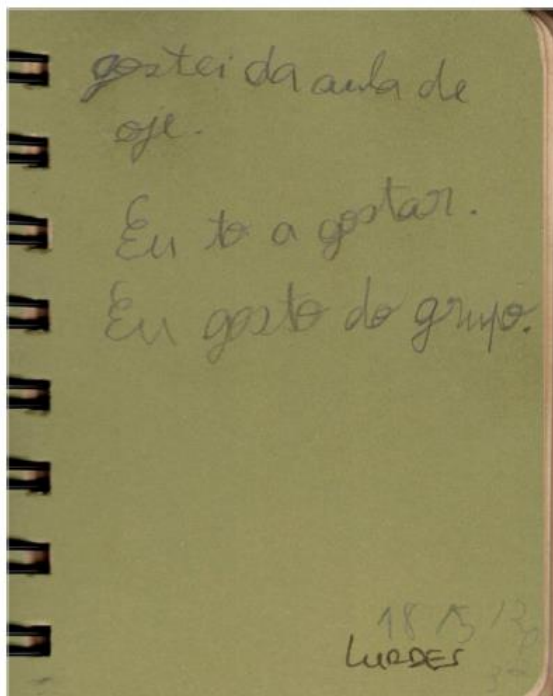 gostei da aula de
oje.
Eu to a gostar.
Eu gosto do grupo.
LURDES